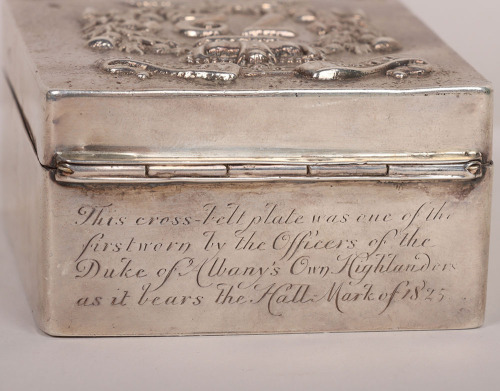 This cross-belt plate was one of the
first worn by the Officers of the
Duke of Albany's Own Highlanders
as it bears the Hall Mark of 1825